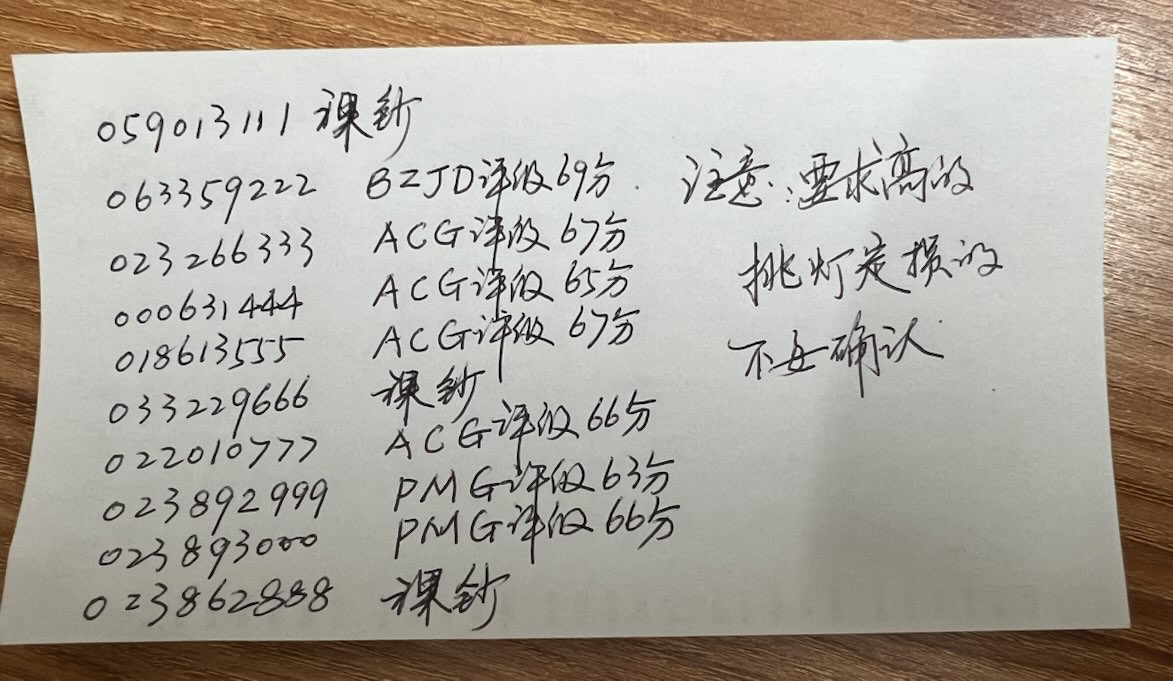 059013111 裸钞
063359222 BZJD评级69分.
023266333 ACG评级 67分
000631444 ACG评级 65分
018613555 ACG评级 67分
033229666 裸钞
022010777 ACG评级 66分
023892999 PMG评级 63分
023893000 PMG评级 66分
023862888 裸钞
注意:要求高的
挑灯定损的
不要确认